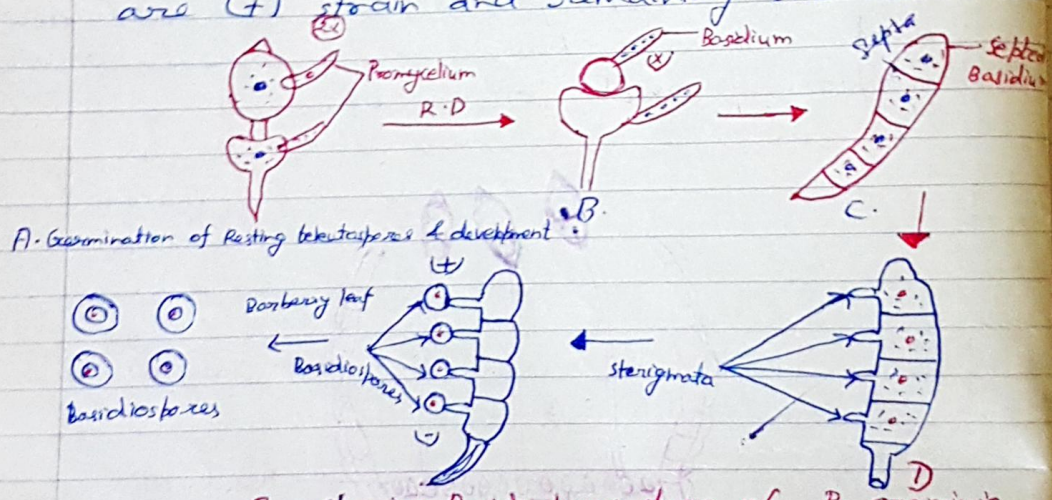 are (+) strain and
2x
Promycelium
R.D
Basidium
(x)
Septa
Septa
Basidium
B.
C.
A. Germination of Resting teleutospores & development
(+)
Barberry leaf
Basidiospores
Sterigmata
Basidiospores
(-)
D